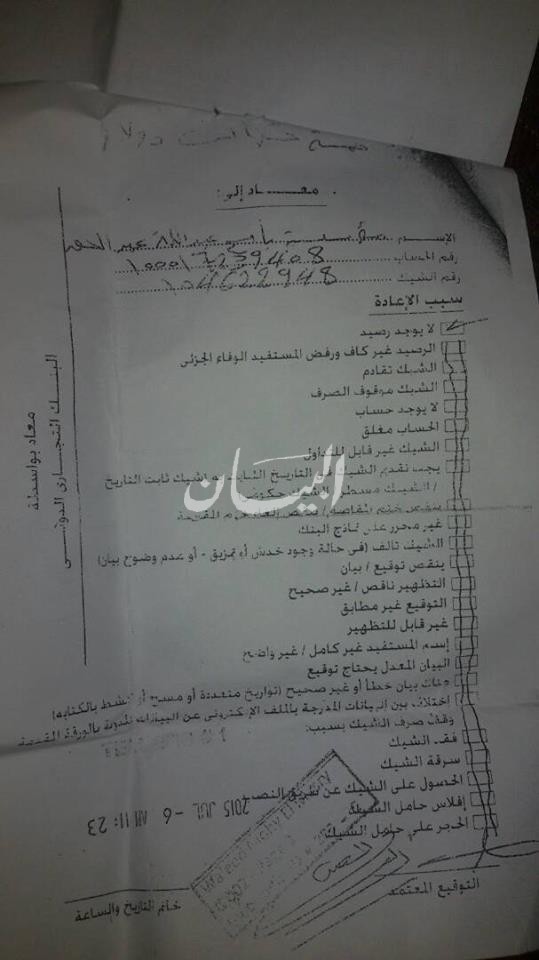 معاد إلى:
الإسم
رقم الحساب 100017239408
رقم الشيك 104622948
سبب الإعادة
لا يوجد رصيد
الرصيد غير كاف ورفض المستفيد الوفاء الجزئى
الشيك تقادم
الشيك موقوف الصرف
لا يوجد حساب
الحساب مغلق
الشيك غير قابل للتداول
يجب تقديم الشيك فى التاريخ الثابت به / شيك ثابت التاريخ
/ الشيك مسطر / الشيك حكومى
غير محرر على نماذج البنك
الشيك تالف (فى حالة وجود خدش أو تمزيق - أو عدم وضوح بيان)
ينقص توقيع / بيان
التظهير ناقص / غير صحيح
التوقيع غير مطابق
غير قابل للتظهير
إسم المستفيد غير كامل / غير واضح
البيان المعدل يحتاج توقيع
هناك بيان خطأ أو غير صحيح (تواريخ متعددة أو مسح أو كشط بالكتابه)
إختلاف بين البيانات المدرجة بالملف الإلكترونى عن البيانات المدونة بالورقة القديمة
وقف صرف الشيك بسبب:
فقد الشيك
سرقة الشيك
الحصول على الشيك عن طريق النصب
إفلاس حامل الشيك
الحجر على حامل الشيك
التوقيع المعتمد
خاتم التاريخ والساعة
2015 JUL -6 AM 11:23
معاد بواسطة
البنك التجارى الدولى
البيان